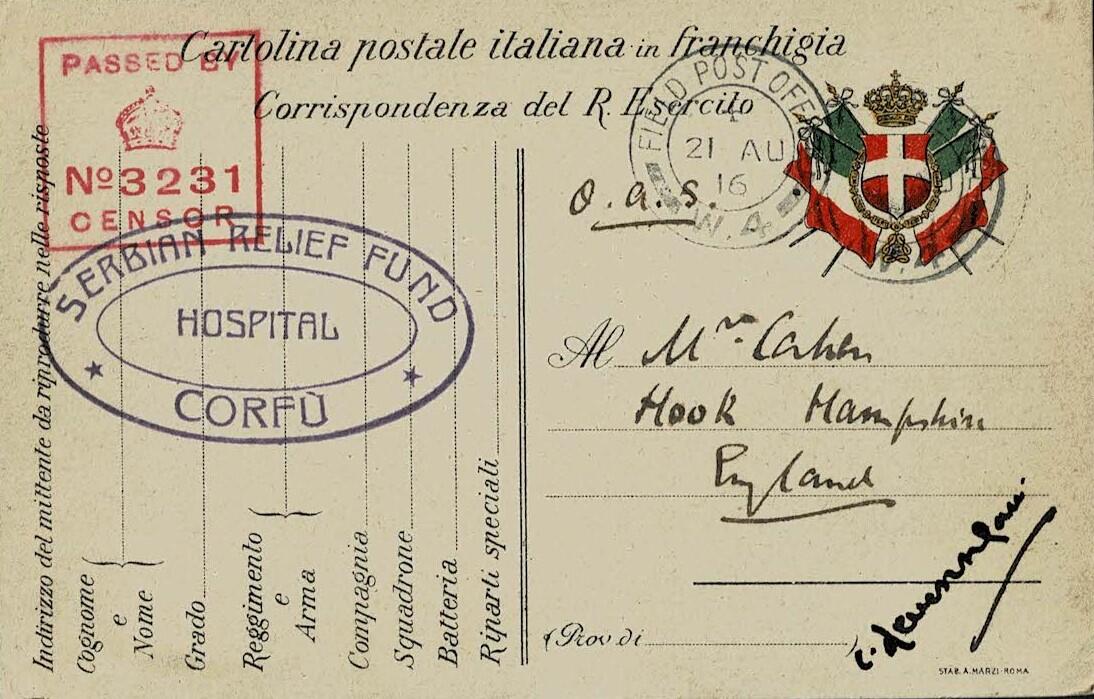 Cartolina postale italiana in franchigia
Corrispondenza del R. Esercito
PASSED BY
Nº 3231
CENSOR
FIELD POST OFFI
21 AU
16
W.4
O.a.S.
SERBIAN RELIEF FUND
HOSPITAL
CORFÙ
Indirizzo del mittente da riprodurre nelle risposte
Cognome
e
Nome
Grado
Reggimento
e
Arma
Compagnia
Squadrone
Batteria
Riparti speciali
Al Mrs. Cohen
Hook Hampshire
England
(Prov di )
STAB. A. MARZI-ROMA